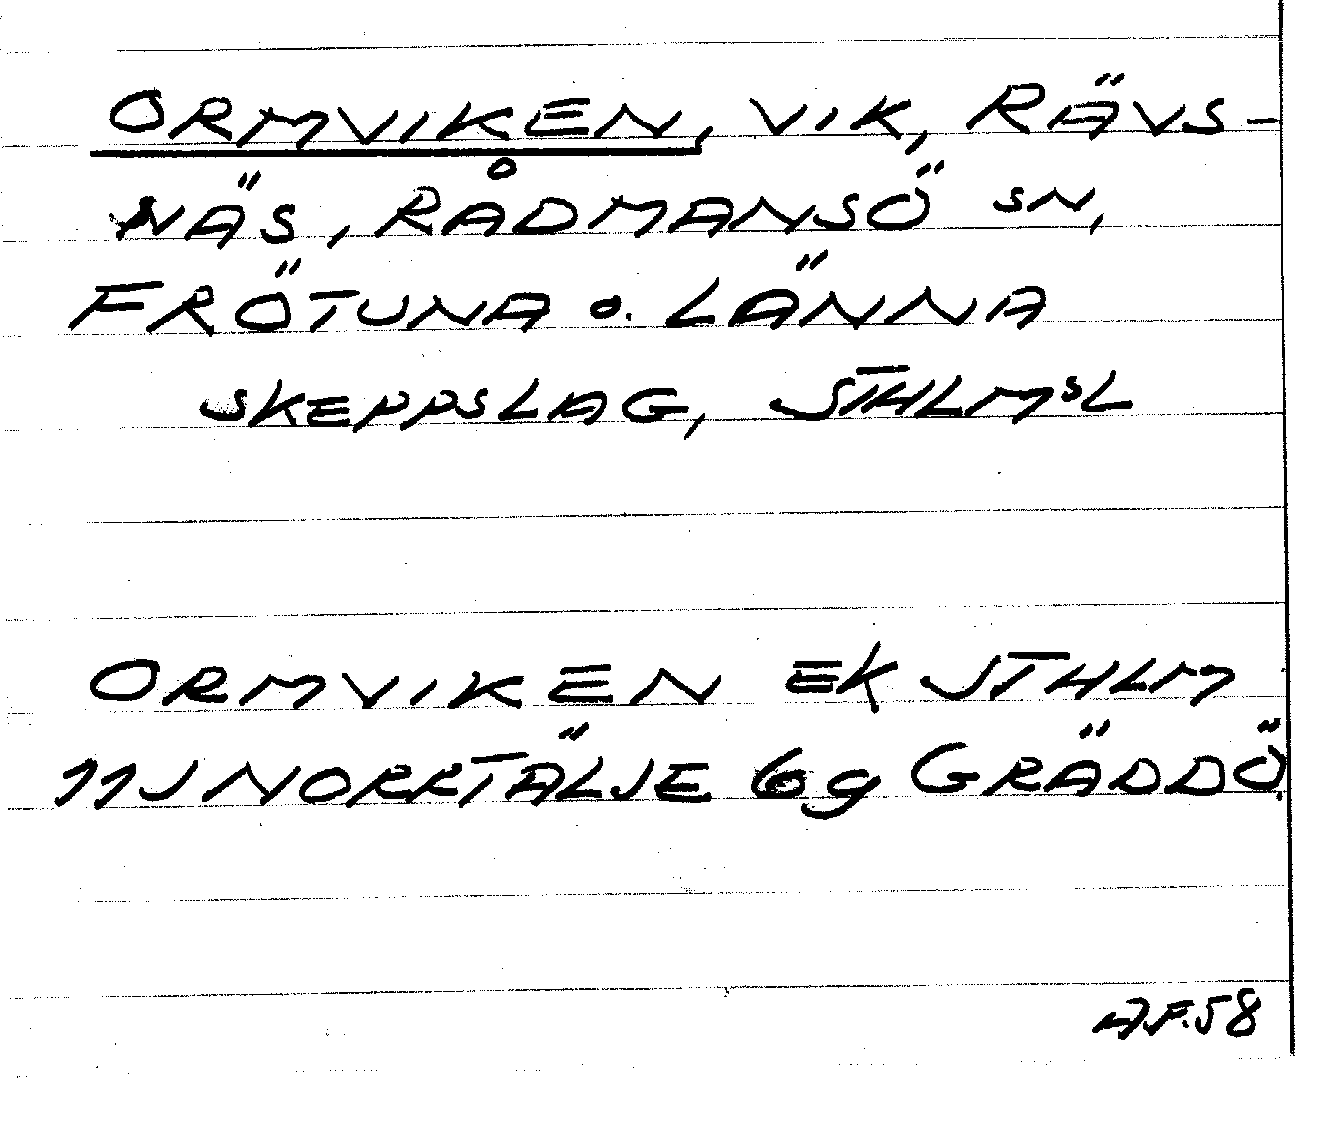 ORMVIKEN, VIK, RÄVS-
NÄS, RÅDMANSÖ SN,
FRÖTUNA o. LÄNNA
SKEPPSLAG, STHLMSL
ORMVIKEN EK STHLM
11J NORRTÄLJE 6g GRÄDDÖ
A.F.58